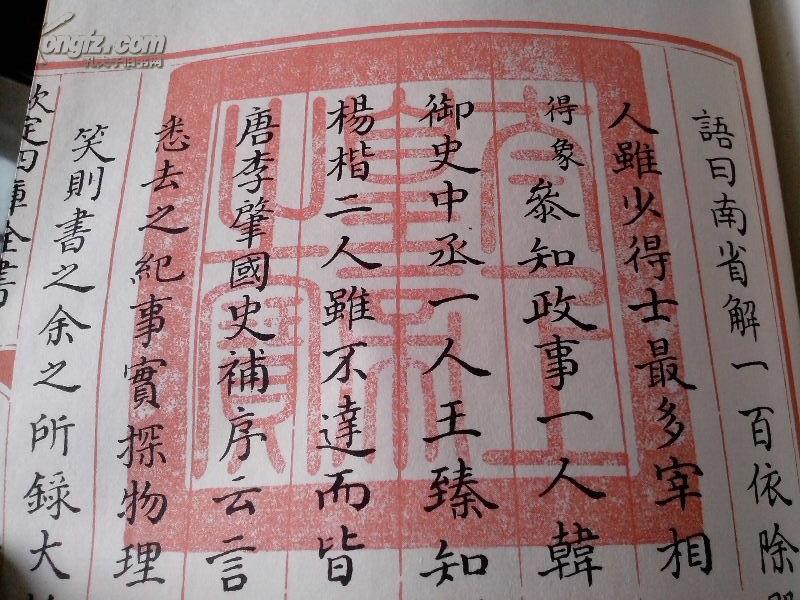 Kongfz.com
孔夫子旧书网
語曰南省解一百依除
人雖少得士最多宰相
得象叅知政事一人韓
御史中丞一人王臻知
楊楷二人雖不達而皆
唐李肇國史補序云言
悉去之紀事實探物理
笑則書之余之所錄大
欽定四庫全書
太上皇帝之寶